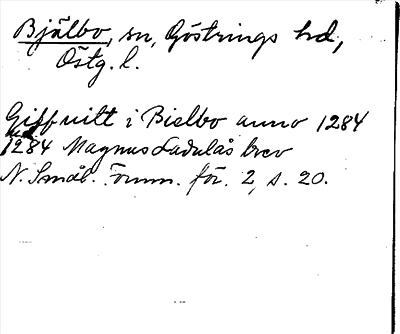 Bjälbo, sn, Göstrings hd,
Östg. l.
Giffuitt i Bielbo anno 1284
1284 Magnus Ladulås brev
N. Smål. Fornm. för. 2, s. 20.